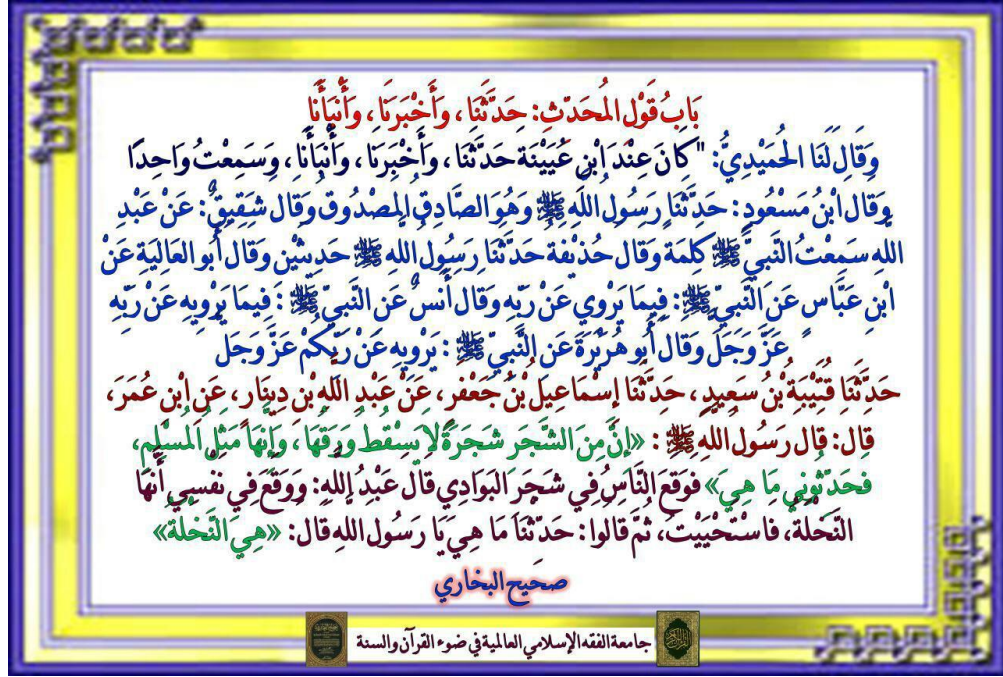 بَابُ قَوْلِ المُحَدِّثِ: حَدَّثَنَا، وَأَخْبَرَنَا، وَأَنْبَأَنَا
وَقَالَ لَنَا الحُمَيْدِيُّ: "كَانَ عِنْدَ ابْنِ عُيَيْنَةَ حَدَّثَنَا، وَأَخْبَرَنَا، وَأَنْبَأَنَا، وَسَمِعْتُ وَاحِدًا
وَقَالَ ابْنُ مَسْعُودٍ: حَدَّثَنَا رَسُولُ اللَّهِ ﷺ وَهُوَ الصَّادِقُ المَصْدُوقُ وَقَالَ شَقِيقٌ: عَنْ عَبْدِ
اللَّهِ سَمِعْتُ النَّبِيَّ ﷺ كَلِمَةً وَقَالَ حُذَيْفَةُ حَدَّثَنَا رَسُولُ اللَّهِ ﷺ حَدِيثَيْنِ وَقَالَ أَبُو العَالِيَةِ عَنْ
ابْنِ عَبَّاسٍ عَنِ النَّبِيِّ ﷺ: فِيمَا يَرْوِي عَنْ رَبِّهِ وَقَالَ أَنَسٌ عَنِ النَّبِيِّ ﷺ: فِيمَا يَرْوِيهِ عَنْ رَبِّهِ
عَزَّ وَجَلَّ وَقَالَ أَبُو هُرَيْرَةَ عَنِ النَّبِيِّ ﷺ: يَرْوِيهِ عَنْ رَبِّكُمْ عَزَّ وَجَل
حَدَّثَنَا قُتَيْبَةُ بْنُ سَعِيدٍ، حَدَّثَنَا إِسْمَاعِيلُ بْنُ جَعْفَرٍ، عَنْ عَبْدِ اللَّهِ بْنِ دِينَارٍ، عَنِ ابْنِ عُمَرَ،
قَالَ: قَالَ رَسُولُ اللَّهِ ﷺ: «إِنَّ مِنَ الشَّجَرِ شَجَرَةً لاَ يَسْقُطُ وَرَقُهَا، وَإِنَّهَا مَثَلُ المُسْلِمِ،
فَحَدِّثُونِي مَا هِيَ» فَوَقَعَ النَّاسُ فِي شَجَرِ البَوَادِي قَالَ عَبْدُ اللَّهِ: وَوَقَعَ فِي نَفْسِي أَنَّهَا
النَّخْلَةُ، فَاسْتَحْيَيْتُ، ثُمَّ قَالُوا: حَدِّثْنَا مَا هِيَ يَا رَسُولَ اللَّهِ قَالَ: «هِيَ النَّخْلَةُ»
صحيح البخاري
جامعة الفقه الإسلامي العالمية في ضوء القرآن والسنة